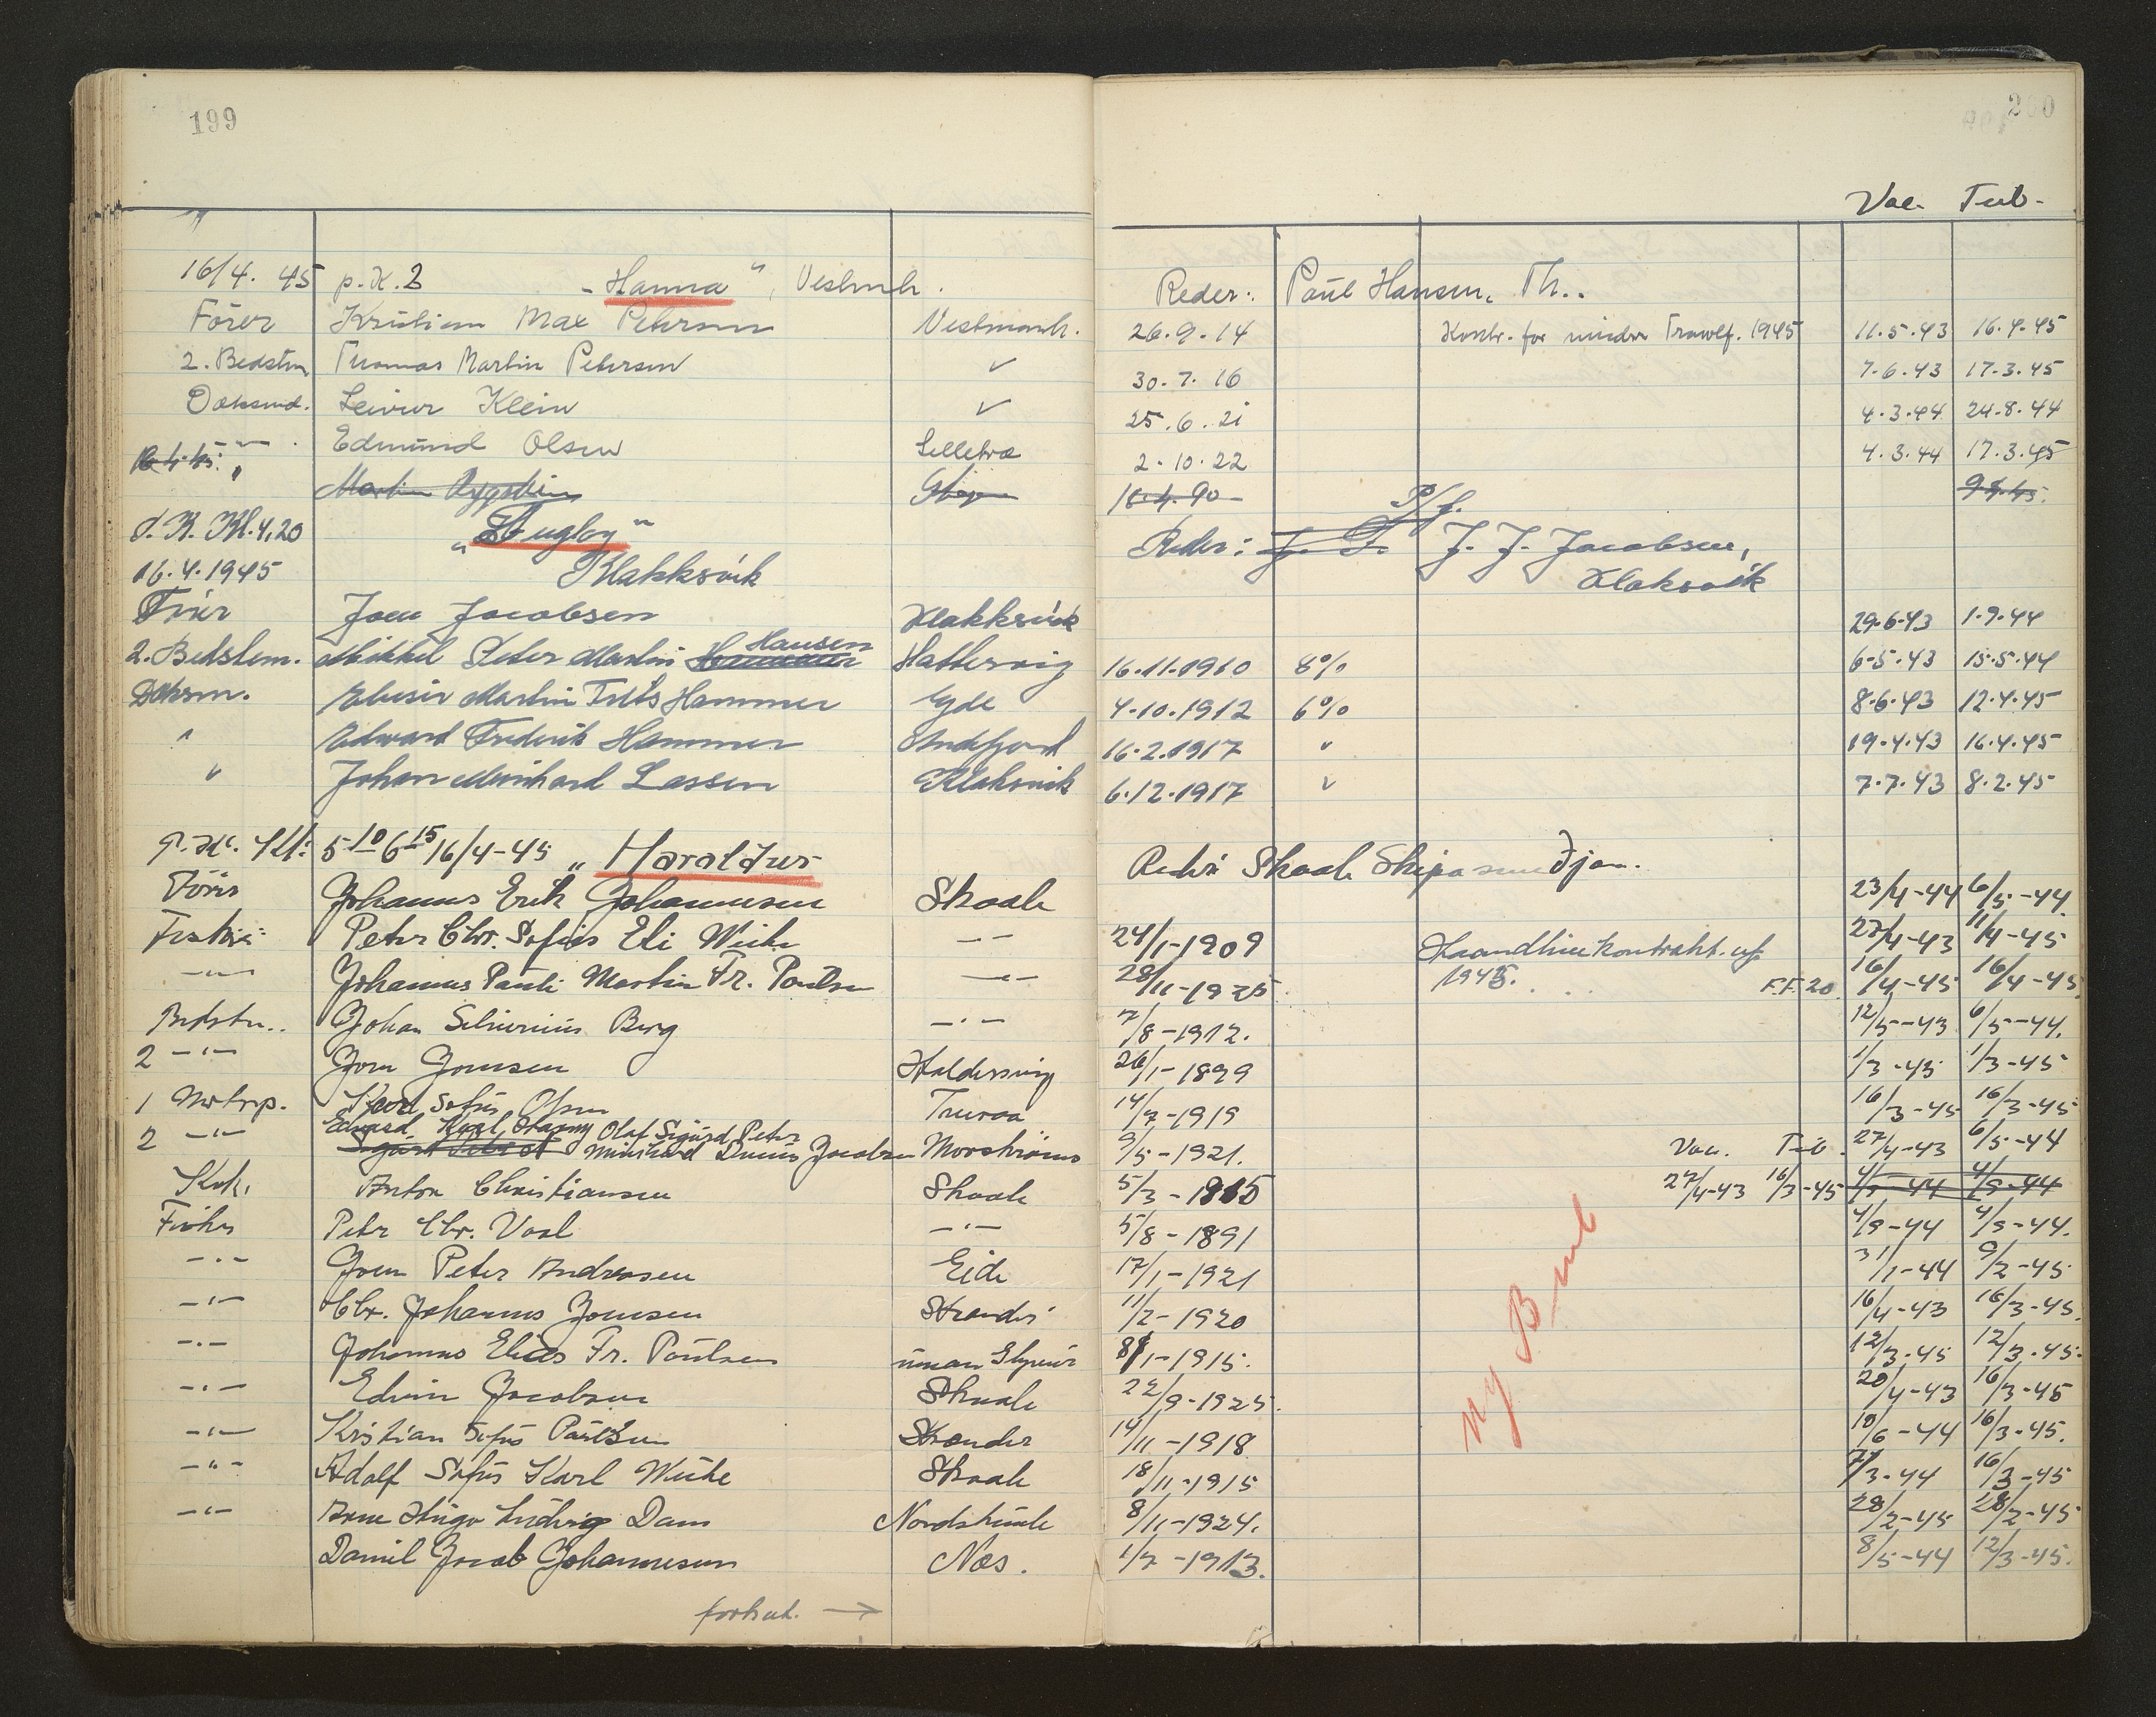 199
200
Vac. Tub.
16/4. 45 p.K. 2 "Hanna", Vestmh. Reder: Paul Hansen, Th.
Förer Kristian Max Petersen Vestmanh. 26.9.14 Kontr. for mindre Trawlf. 1945 11.5.43 16.4.45
2. Bedstm. Thomas Martin Petersen " 30.7.16 7.6.43 17.3.45
Daksmd. Leivur Klein " 25.6.21 4.3.44 24.8.44
-"- Edmund Olsen 2.10.22 4.3.44 17.3.45
" Martin 16.4.90
d. K. Kl. 4,20 "Stugloy" Reder: P/f. J. J. Jacobsen,
16.4.1945 Klakksvik Klaksvik
Förer Joen Jacobsen Klakksvik 29.6.43 1.9.44
2. Bedstem. Mikkel Peter Martin Hansen Hattervig 16.11.1910 8% 6-5.43 15.5.44
Daksm. Martin Hammer Eyde 4.10.1912 6% 8.6.43 12.4.45
" Edward Frederik Hammer Andefjord 16.2.1917 " 19.4.43 16.4.45
" Johan Meinhard Lassen Klaksvik 6.12.1917 " 7.7.43 8.2.45
5 10 6 15 16/4-45 "Haraldur" Reder Skaale
Förer Johannes Erik Johannesen Skaale 23/4-44 6/5-44
Peter Chr. Sofus Eli Weihe -"- 24/1-1909 Haandlinekontrakt. 27/4-43 11/4-45
-"- Johannes Pauli Martin Fr. Poulsen -"- 28/11-1925 1945. F.F. 20 16/4-45 16/4-45
Bedstm. Johan Severinus Berg -"- 7/8-1912. 12/5-43 6/5-44.
2 -"- Joen Joensen Haldersvig 26/1-1899 1/3-45 1/3-45
1 Motrp. Karl Sofus Olsen 14/7-1919 16/3-45 16/3-45
2 -"- Olaf Sigurd Peter Jacobsen 9/5-1921. Vac. Tub. 27/4-43 6/5-44
Kok. Anton Christiansen Skaale 5/3-1915 27/4-43 16/3-45
Fisker Petr Chr. Vaal -"- 5/8-1891 4/9-44 4/9-44.
-"- Joen Peter Andreasen Eide 17/1-1921 31/1-44 9/2-45
-"- Chr. Johannes Joensen Strender 11/2-1920 16/4-43 16/3-45.
-"- Johannes Elias Fr. Poulsen 1-1915. 12/3-45 12/3-45.
-"- Edvin Jacobsen Skaale 22/9-1925. 20/4-43 16/3-45
-"- Kristian Sofus Poulsen Strender 14/11-1918 10/6-44 16/3-45.
-"- Adolf Sofus Karl Weihe Skaale 18/11-1915 3-44 16/3-45
-"- Arne Hugo Ludvig Dam Nordskaale 8/11-1924. 28/2-45 28/2-45
Daniel Jacob Johannesen Næs. 1/7-1913. 8/5-44 12/3-45.
Ny B
fortsat. →